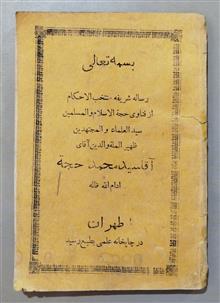 بسمه تعالی
رساله شریفه منتخب الاحکام
از فتاوی حجة الاسلام والمسلمین
سید العلماء و المجتهدین
ظهیر الملة والدین آقای
آقا سید محمد حجة
ادام الله ظله
طهران
در چاپخانه علمی بطبع رسید